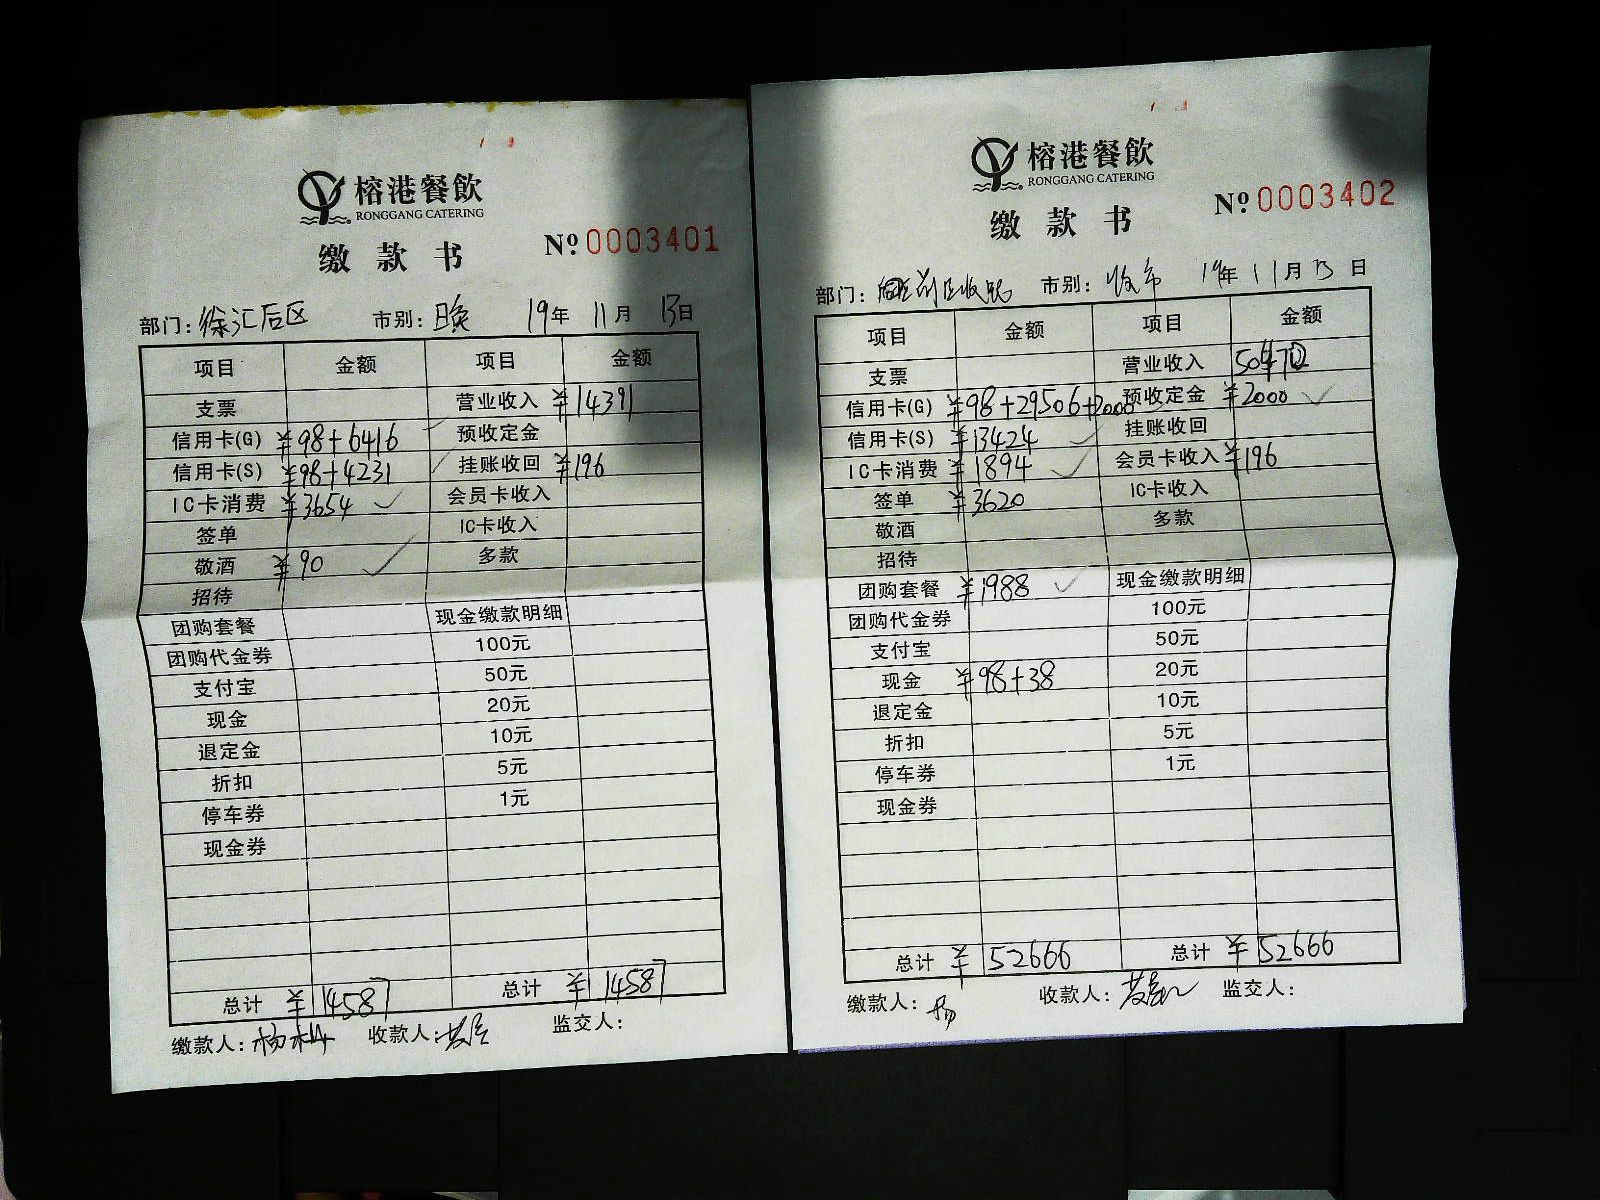 榕港餐飲
RONGGANG CATERING
缴款书
№ 0003401
部门: 徐汇后区 市别: 晚 19年 11月 13日
项目 金额 项目 金额
支票 营业收入 ¥14391
信用卡(G) ¥98+6416 预收定金
信用卡(S) ¥98+4231 挂账收回 ¥196
IC卡消费 ¥3654 会员卡收入
签单 IC卡收入
敬酒 ¥90 多款
招待
团购套餐 现金缴款明细
团购代金券 100元
支付宝 50元
现金 20元
退定金 10元
折扣 5元
停车券 1元
现金券
总计 ¥14587 总计 ¥14587
缴款人: 杨 收款人: 监交人:
榕港餐飲
RONGGANG CATERING
缴款书
№ 0003402
部门: 前区收银 市别: 19年 11月 13日
项目 金额 项目 金额
支票 营业收入
信用卡(G) ¥98+29506+2000 预收定金 ¥2000
信用卡(S) ¥13424 挂账收回
IC卡消费 ¥1894 会员卡收入 ¥196
签单 ¥3620 IC卡收入
敬酒 多款
招待
团购套餐 ¥1988 现金缴款明细
团购代金券 100元
支付宝 50元
现金 ¥98+38 20元
退定金 10元
折扣 5元
停车券 1元
现金券
总计 ¥52666 总计 ¥52666
缴款人: 杨 收款人: 监交人: